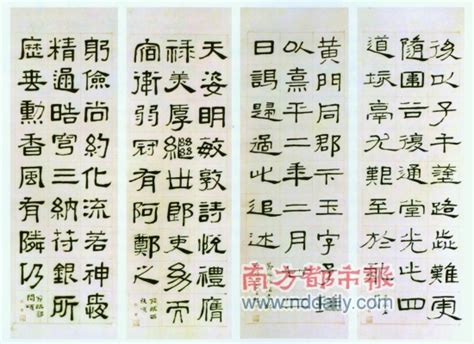 後以子午塗路歮難更
隨圍谷復通堂光此四
道垓鬲尤艱至於
黃門同郡卞玉字子
以熹平二年二月
日謁歸過此追述
天姿明敏敦詩悅禮膺
祿美厚繼世郎吏幼而
宿衛弱冠有阿鄭之
躬儉尚約化流若神愛
精通晧穹三納苻銀所
歷垂勳香風有隣仍
南方都市报
www.nddaily.com